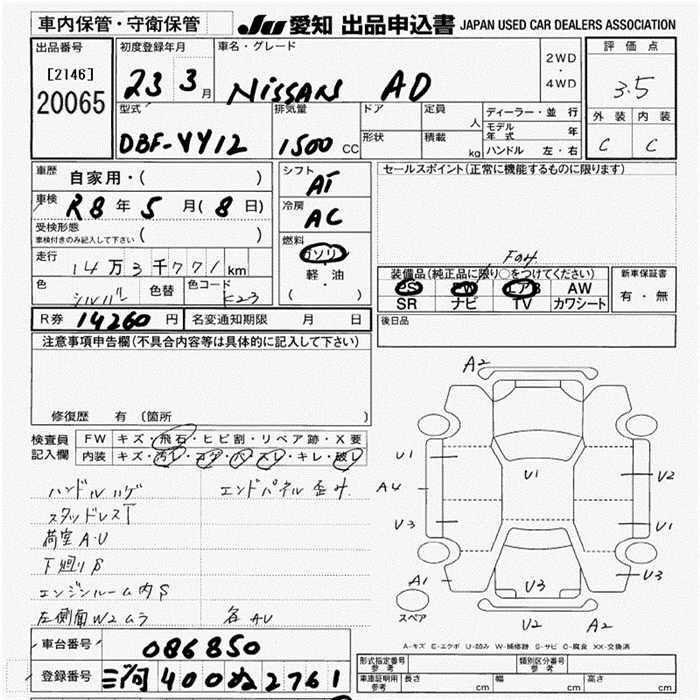 車内保管・守衛保管
JU 愛知 出品申込書 JAPAN USED CAR DEALERS ASSOCIATION
出品番号
[2146]
20065
初度登録年月
23 3月
車名・グレード
NISSAN AD
2WD
・
4WD
評価点
3.5
外装 内装
C C
型式
DBF-VY12
排気量
1500 CC
ドア
形状
定員
人
積載
kg
ディーラー・並行
モデル年式 年
ハンドル 左・右
車歴 自家用・( )
車検 R8年5月(8日)
受検形態
車検付きのみ記入して下さい ( )
走行
14万3千771km
色
シルバー
色替
色コード
K23
シフト
AT
冷房
AC
燃料
ガソリン
軽・油
( ・ )
セールスポイント(正常に機能するものに限ります)
装備品(純正品に限り○をつけてください)
PS PW エアB AW
SR ナビ TV カワシート
新車保証書
有・無
後日品
R券 14260円
名変通知期限 月 日
注意事項申告欄(不具合内容等は具体的に記入して下さい)
修復歴 有(箇所 )
検査員
記入欄
FW キズ・飛石・ヒビ割・リペア跡・X要
内装 キズ・汚レ・コゲ・穴・スレ・キレ・破レ
ハンドルハゲ
エンドパネル歪み
スタッドレスT
荷室A・U
下廻りS
エンジンルーム内S
左側面W2ムラ 各AU
A2
U1 U1 U2
A4
U3 U1
A1 U3 U3
スペア U2 A2
A-キズ E-エクボ U-凹み W-補修跡 S-サビ C-腐食 XX-交換済
車台番号 086850
登録番号 三河400ぬ2761
形式指定番号
参考
類別区分番号
参考
車庫証明用
参考
長さ cm 幅 cm 高さ cm